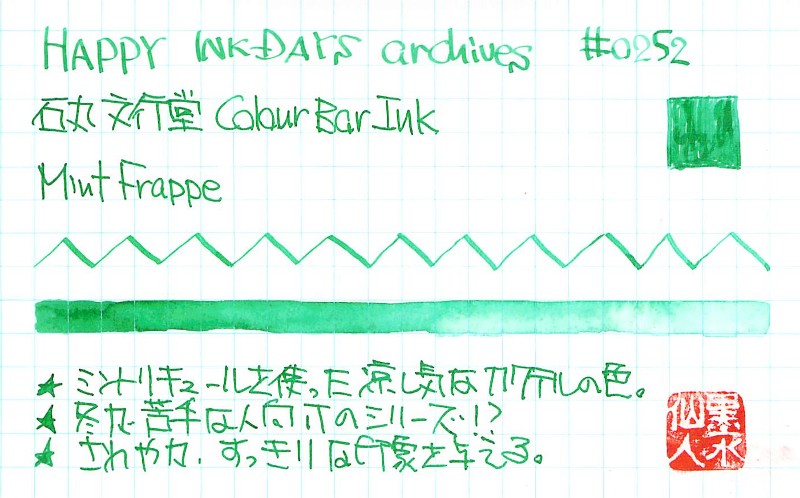 HAPPY INK-DAYS archives #0252
石丸文行堂 Colour Bar Ink
Mint Frappe
★ ミントリキュールを使った涼し気なカクテルの色。
★ 冬が苦手な人向けのシリーズ!?
★ さわやか、すっきりな印象を与える。
墨水仙人